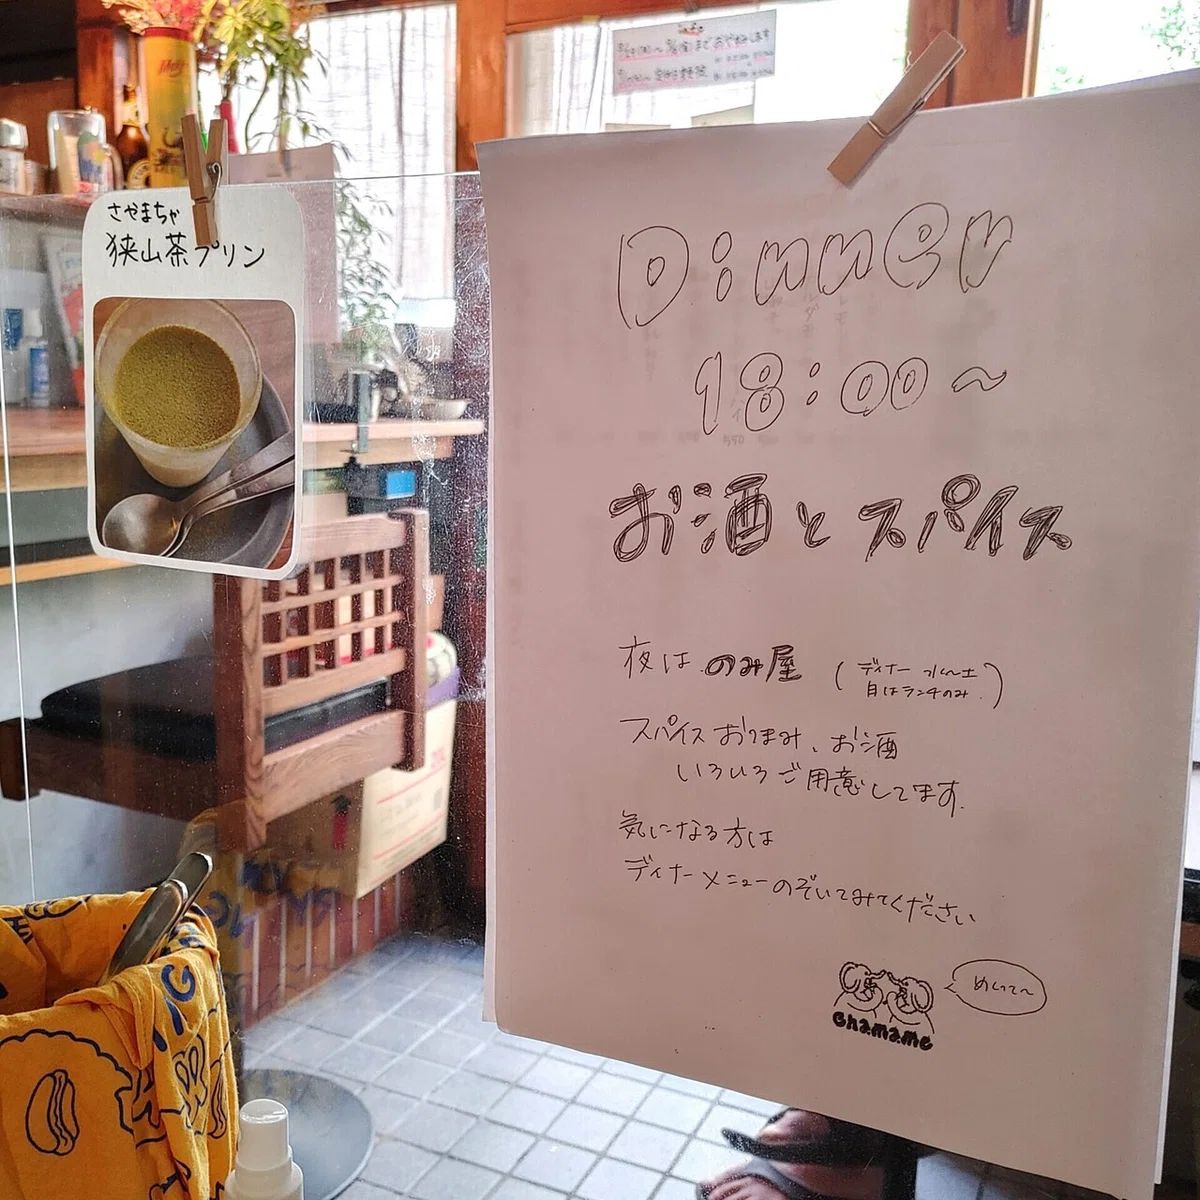 さやまちゃ
狭山茶プリン
Dinner
18:00～
お酒とスパイス
夜は のみ屋 (ディナー 水～土
日はランチのみ)
スパイスおつまみ、お酒
いろいろご用意してます.
気になる方は
ディナーメニューのぞいてみてください
chamame
めくって～